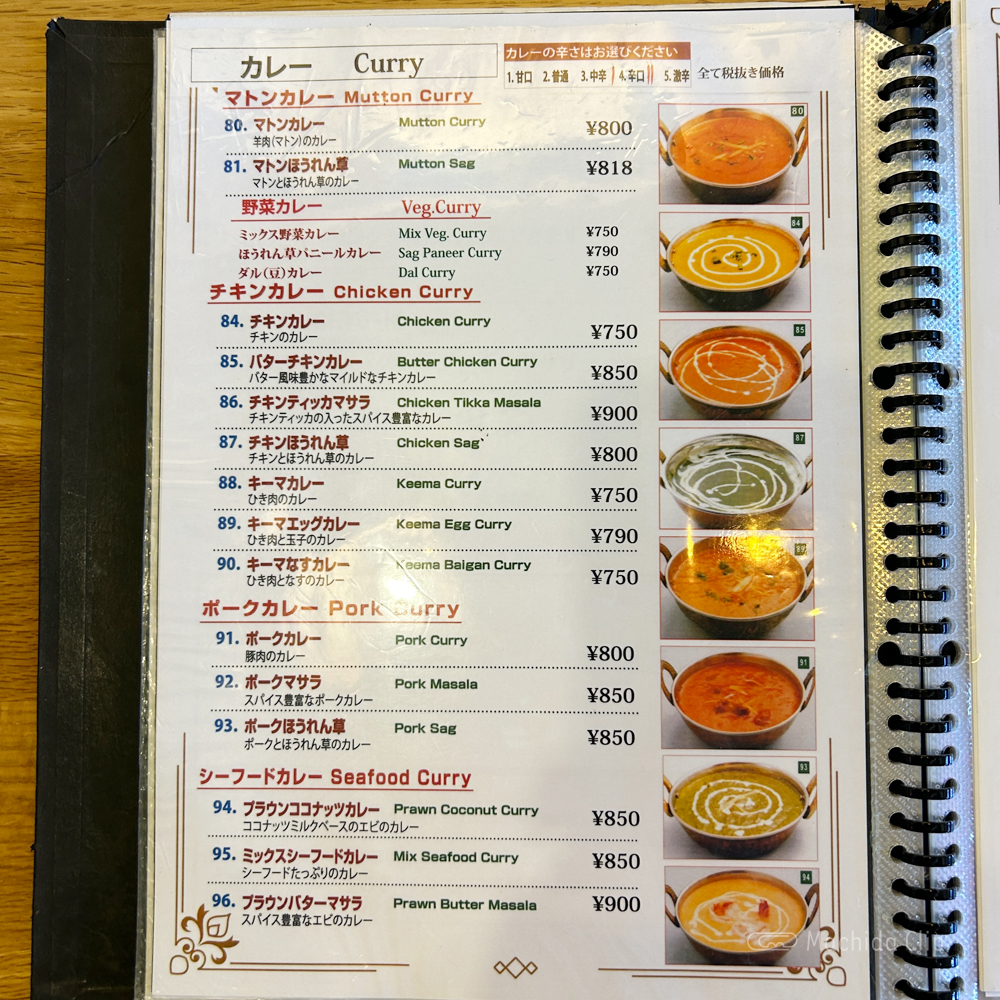 カレー Curry
カレーの辛さはお選びください
1.甘口 2.普通 3.中辛 4.辛口 5.激辛 全て税抜き価格
マトンカレー Mutton Curry
80. マトンカレー Mutton Curry ¥800
羊肉(マトン)のカレー
81. マトンほうれん草 Mutton Sag ¥818
マトンとほうれん草のカレー
野菜カレー Veg.Curry
ミックス野菜カレー Mix Veg. Curry ¥750
ほうれん草パニールカレー Sag Paneer Curry ¥790
ダル(豆)カレー Dal Curry ¥750
チキンカレー Chicken Curry
84. チキンカレー Chicken Curry ¥750
チキンのカレー
85. バターチキンカレー Butter Chicken Curry ¥850
バター風味豊かなマイルドなチキンカレー
86. チキンティッカマサラ Chicken Tikka Masala ¥900
チキンティッカの入ったスパイス豊富なカレー
87. チキンほうれん草 Chicken Sag ¥800
チキンとほうれん草のカレー
88. キーマカレー Keema Curry ¥750
ひき肉のカレー
89. キーマエッグカレー Keema Egg Curry ¥790
ひき肉と玉子のカレー
90. キーマなすカレー Keema Baigan Curry ¥750
ひき肉となすのカレー
ポークカレー Pork Curry
91. ポークカレー Pork Curry ¥800
豚肉のカレー
92. ポークマサラ Pork Masala ¥850
スパイス豊富なポークカレー
93. ポークほうれん草 Pork Sag ¥850
ポークとほうれん草のカレー
シーフードカレー Seafood Curry
94. プラウンココナッツカレー Prawn Coconut Curry ¥850
ココナッツミルクベースのエビのカレー
95. ミックスシーフードカレー Mix Seafood Curry ¥850
シーフードたっぷりのカレー
96. プラウンバターマサラ Prawn Butter Masala ¥900
スパイス豊富なエビのカレー
80
84
85
87
89
91
93
94
Machida Clip